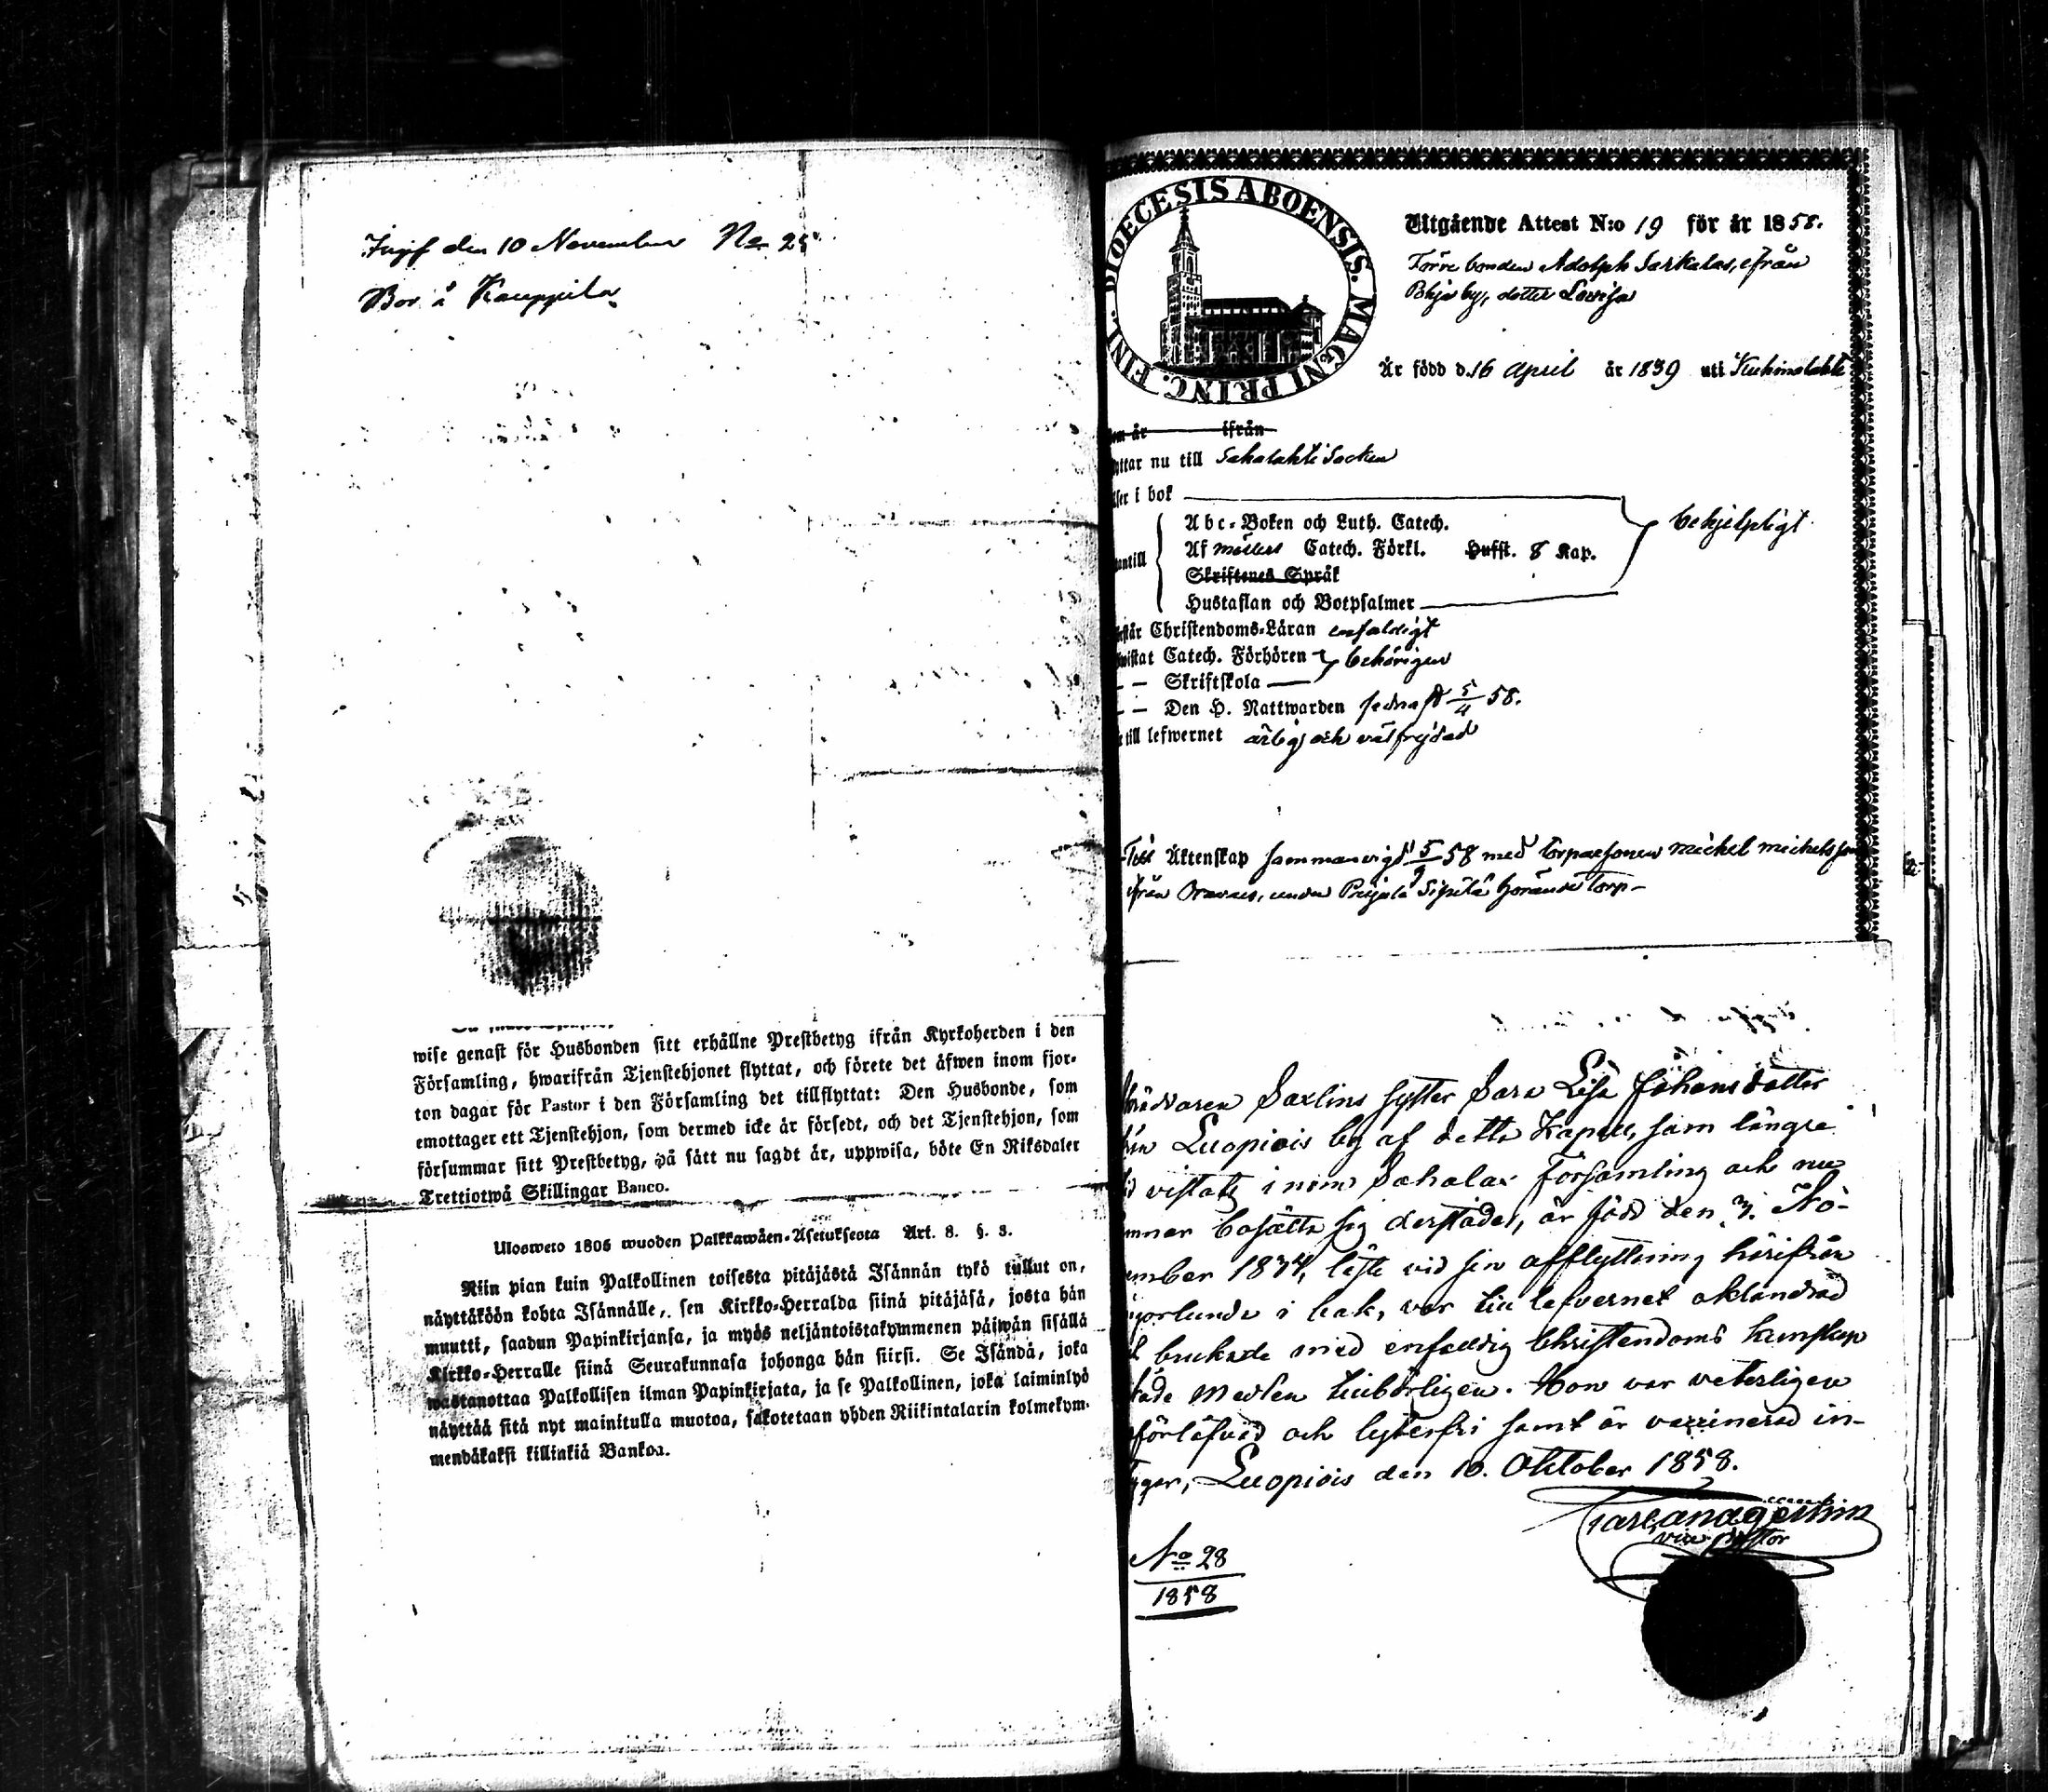 Ingif den 10 November No 25
Bor å Kauppila
wise genast för Husbonden sitt erhållne Prestbetyg ifrån Kyrkoherden i den
Församling, hwarifrån Tjenstehjonet flyttat, och förete det äfwen inom fjor-
ton dagar för Pastor i den Församling det tillflyttat: Den Husbonde, som
emottager ett Tjenstehjon, som dermed icke är försedt, och det Tjenstehjon, som
försummar sitt Prestbetyg, på sätt nu sagdt är, uppwisa, böte En Riksdaler
Trettiotwå Skillingar Banco.
Ulosweto 1805 wuoden Palkkawäen-Asetuksesta Art. 8. §. 3.
Niin pian kuin Palkollinen toisesta pitäjästä Isännän tykö tullut on,
näyttäköön kohta Isännälle, sen Kirkko-Herralda siinä pitäjäsä, josta hän
muutti, saadun Papinkirjansa, ja myös neljäntoistakymmenen päiwän sisällä
Kirkko-Herralle siinä Seurakunnasa johonga hän siirsi. Se Isändä, joka
wastanottaa Palkollisen ilman Papinkirjata, ja se Palkollinen, joka laiminlyö
näyttää sitä nyt mainitulla muotoa, sakotetaan yhden Riikintalarin kolmekym-
mendäkaksi killinkiä Bankoa.
DIOECESIS ABOENSIS. MAGNI PRINC. FINL.
Utgående Attest N:o 19 för år 1858.
Förre bonden Adolph Sarkalas, ifrån
by, dotter Lovisa
Är född d. 16 April år 1839 uti Kuhmalahti
om är ifrån
ttar nu till Sahalahti Socken
ser i bok
Abc-Boken och Luth. Catech. behjelpligt
antill Af Möllers Catech. Förkl. Hufst. 8 Kap.
Skriftenes Språk
Hustaflan och Botpsalmer
står Christendoms-Läran enfaldigt
wistat Catech. Förhören behörigen
— — Skriftskola
— — Den H. Nattwarden sednast 5/4 58.
till lefwernet ärlig och välfrejdad
Till Äktenskap sammanvigd 5/9 58 med torparesonen Michel Michelsson
från Oravais, under Sipilä hörande torp—
Saxlins syster Sara Lisa Johansdotter
Luopiois by af detta Kapell, som längre
vistats inom Sahalax församling och nu
mnar bosätta sig derstädes, är född den 3. No-
ember 1834, läste vid sin afflyttning härifrån
i bok, var till lefvernet oklandrad
brukade med enfaldig Christendoms kunskap
Medlen tillbörligen. Hon var veterligen
förlofvad och lytesfri samt är vaccinerad in-
yger, Luopiois den 10. Oktober 1858.
vice pastor
No 28
1858